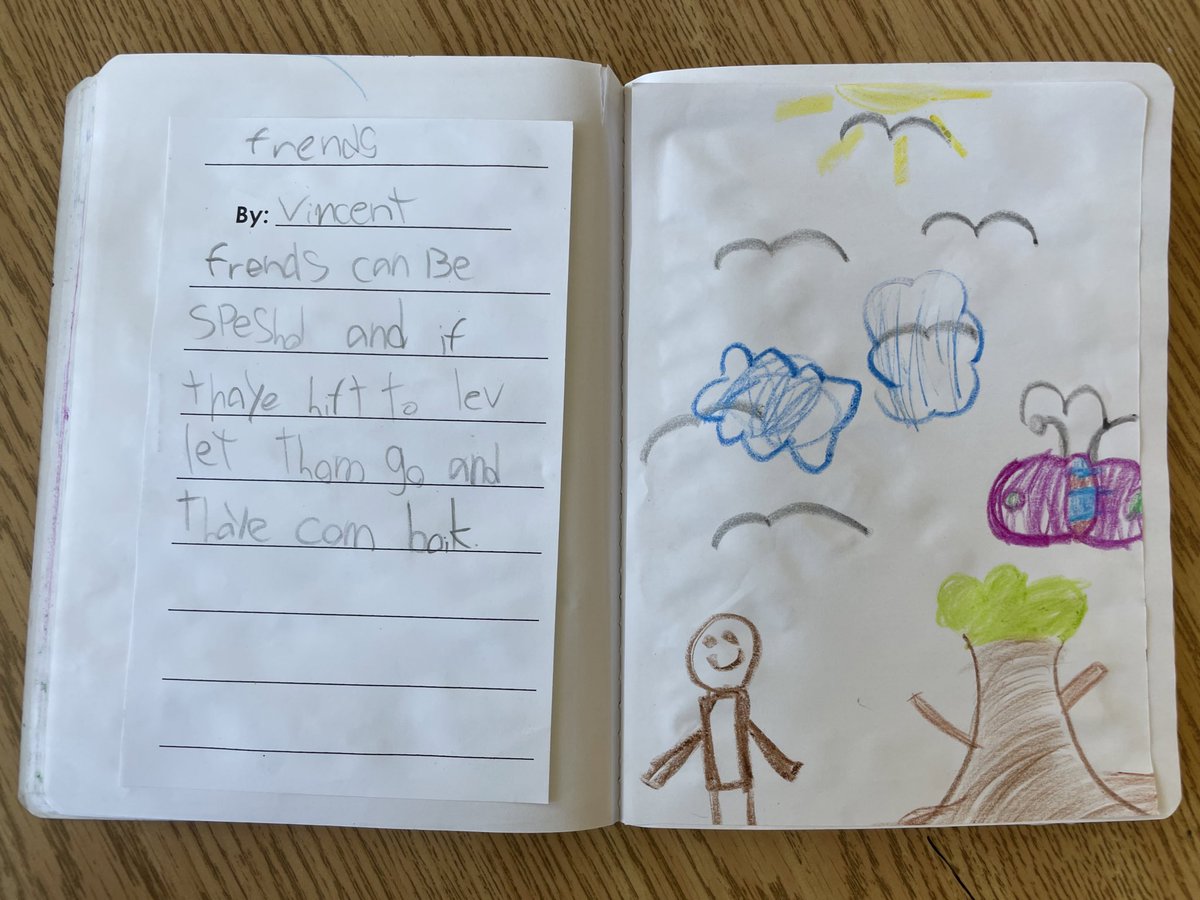 frends
By: Vincent
frends can Be
SPeShol and if
thaye hift to lev
let tham go and
thaye com baik.